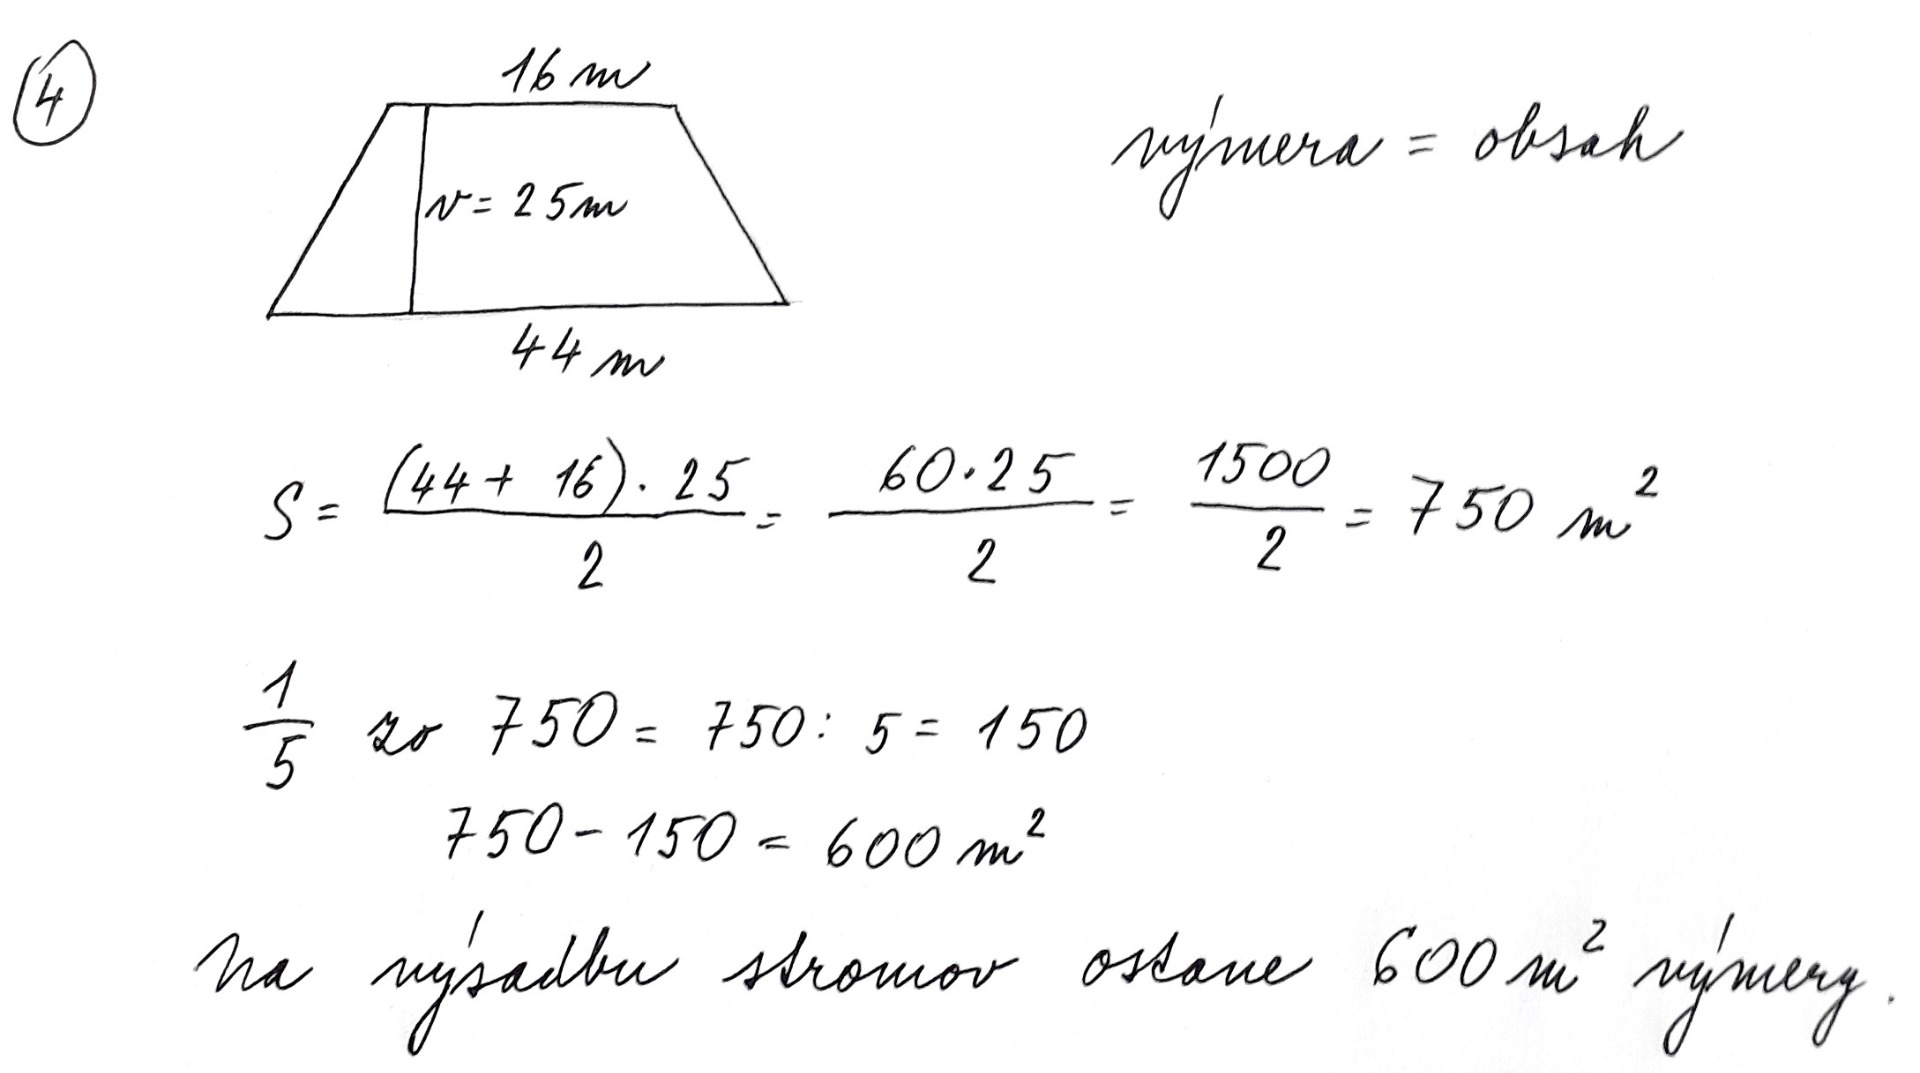 4
16 m
výmera = obsah
v = 25m
44 m
S = (44 + 16) · 25 / 2 = 60 · 25 / 2 = 1500 / 2 = 750 m²
1/5 zo 750 = 750 : 5 = 150
750 - 150 = 600 m²
Na výsadbu stromov ostane 600 m² výmery.